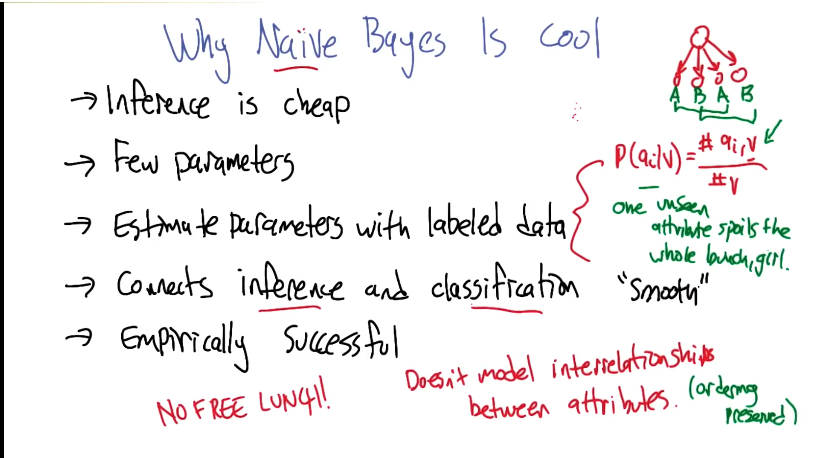 Why Naïve Bayes Is cool
→ Inference is cheap
→ Few parameters
→ Estimate parameters with labeled data
→ Connects inference and classification
→ Empirically successful
A B A B
P(ai|V) = # ai,V / # V
one unseen
attribute spoils the
whole bunch, girl.
"Smooth"
NO FREE LUNCH!
Doesn't model interrelationships
between attributes.
(ordering
preserved)